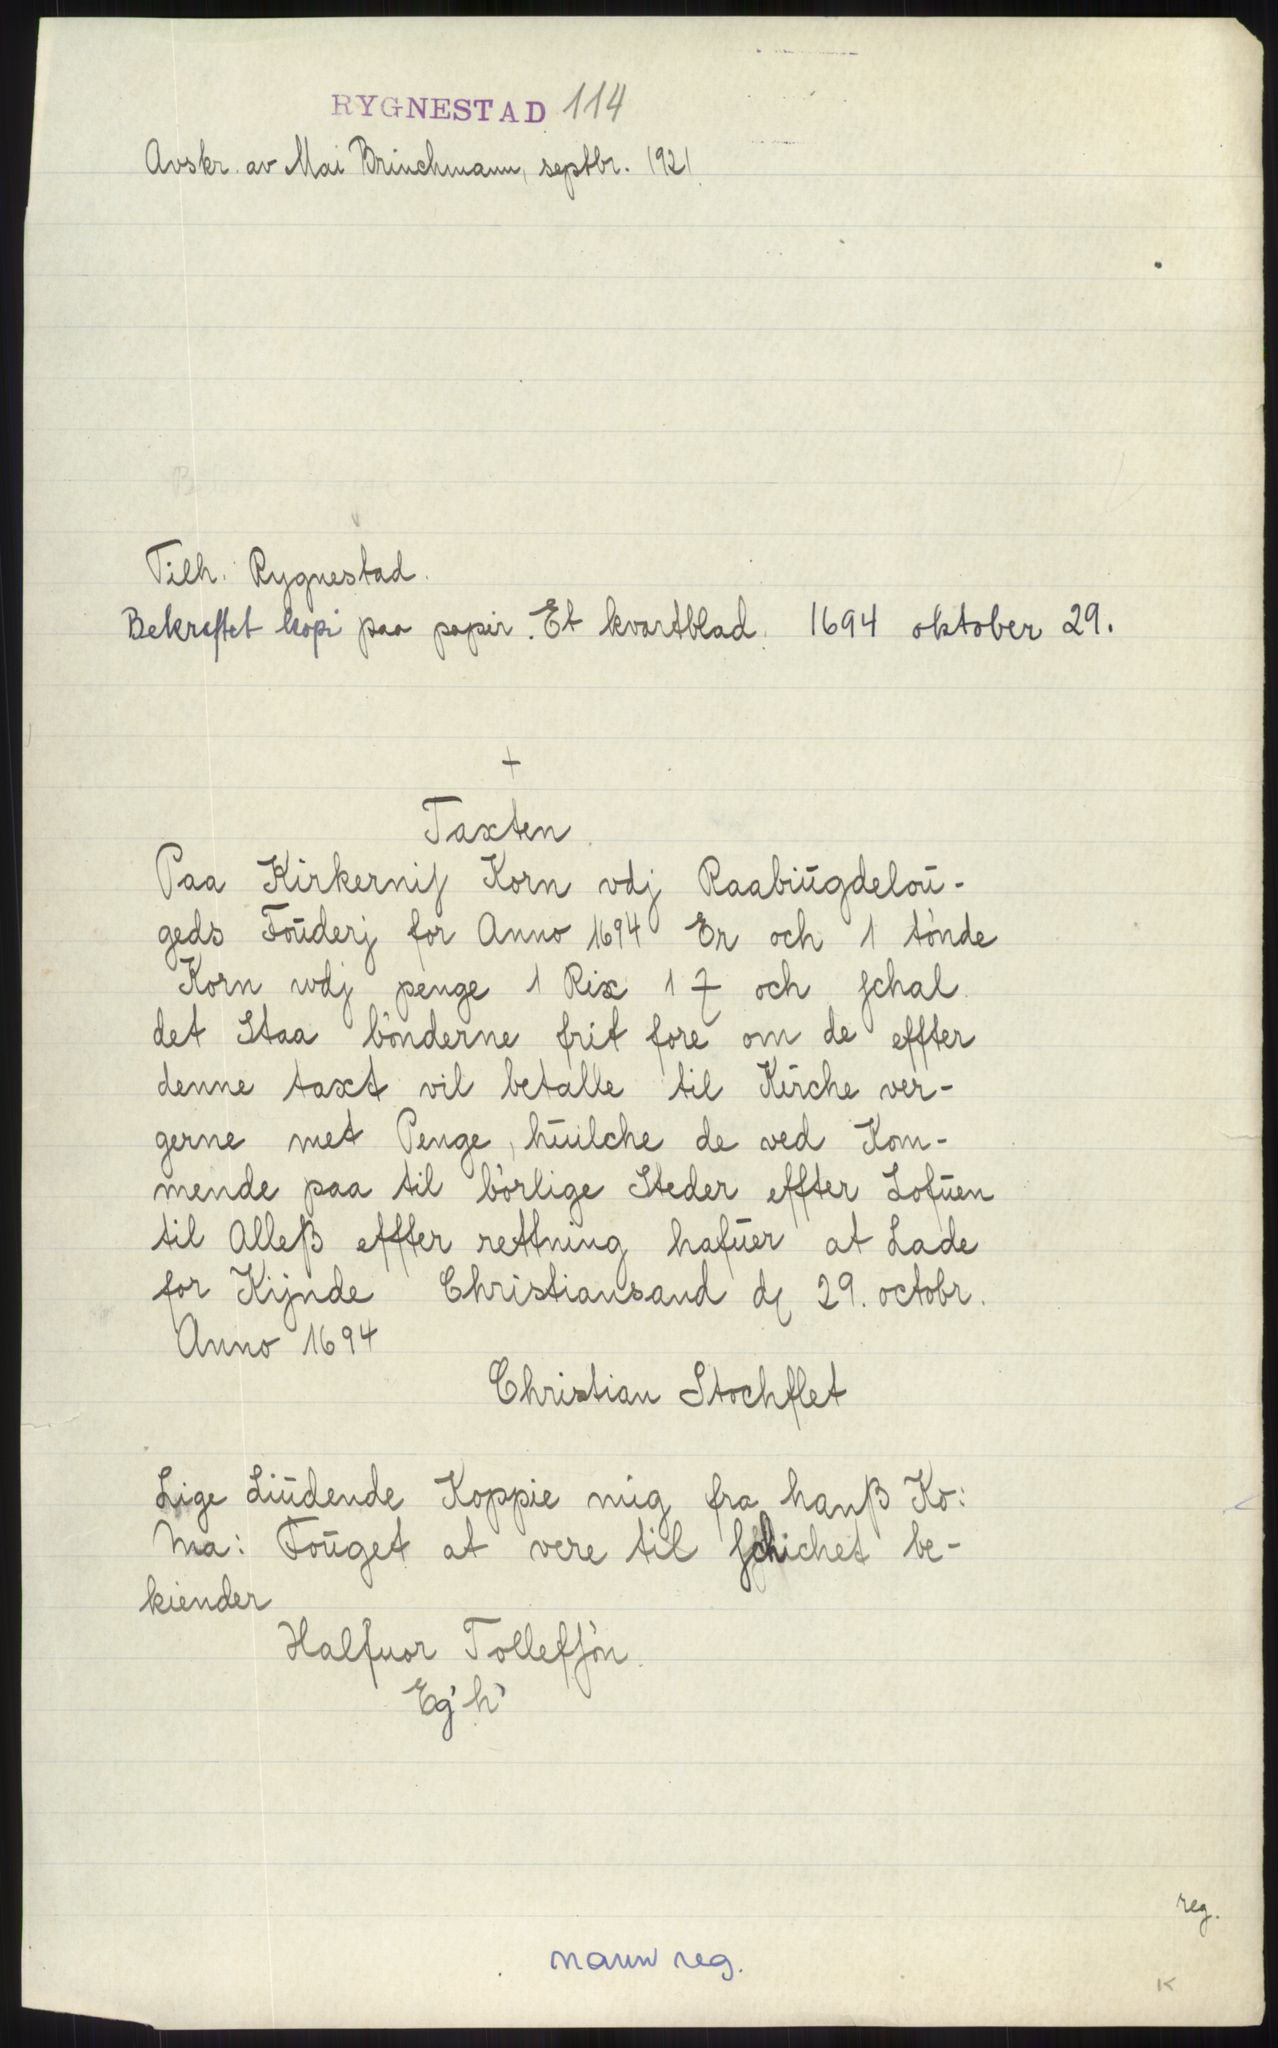 RYGNESTAD 114
Avskr. av Mai Brinchmann, septbr. 1921
Tilh. Rygnestad.
Bekreftet kopi paa papir. Et kvartblad. 1694 oktober 29.
+
Taxten
Paa Kirkerniſ Korn vdj Raabiŭgdeloŭ-
geds Foŭderj for Anno 1694 Er och 1 tønde
Korn wdj penge 1 Rix 1 och ſchal
det Staa bønderne frit fore om de effter
denne taxt vil betalle til Kirche ver-
gerne met Penge, hŭilche de ved Kom-
mende paa til børlige Steder effter Lofŭen
til Alleß effter rettning hafŭer at Lade
for Kijnde Christiansand d 29. octobr.
Anno 1694
Christian Stochflet
Lige Liŭdende Koppie mig fra hanß Ko:
Ma: Foŭget at vere til ſchichet be-
kiender
Halfuor Tollefſøn
Eg' h'
reg.
navn reg.
K